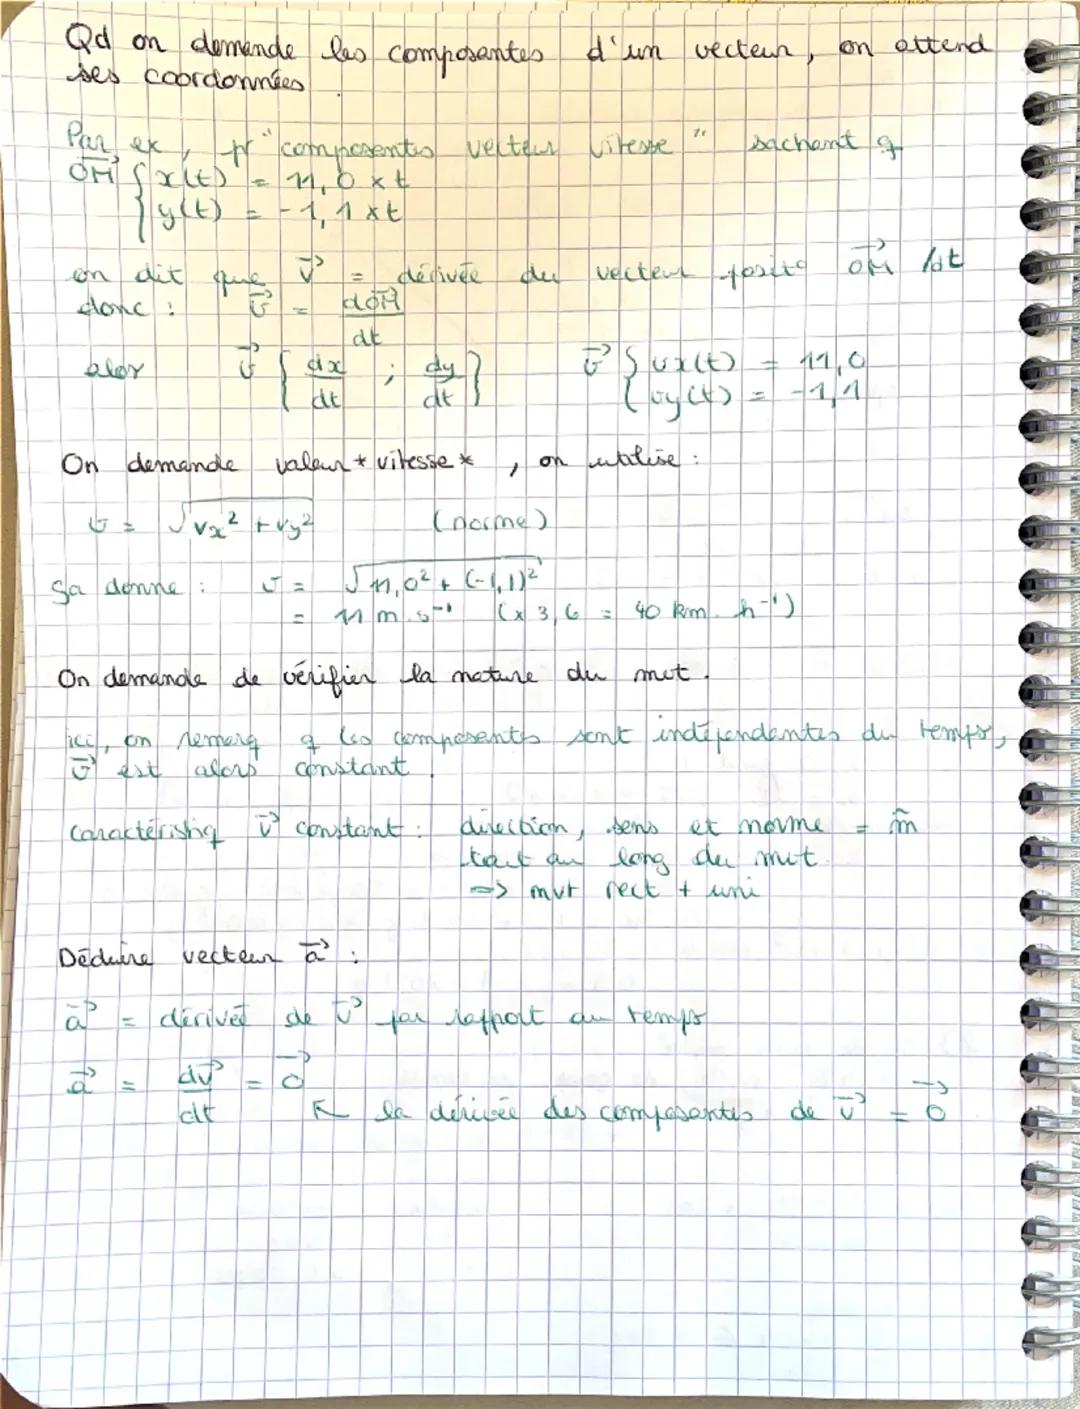 Qd on demande les composantes d'un vecteur, on attend
ses coordonnées.
Par ex, pr "composantes vecteur vitesse" sachant q
OM→ { x(t) = 11,0 x t
{ y(t) = -1,1 x t
on dit que v→ = dérivée du vecteur posit° OM→ /dt
donc : v→ = dOM→/dt
alor v→ { dx/dt ; dy/dt } v→ { vx(t) = 11,0
{ vy(t) = -1,1
On demande valeur * vitesse *, on utilise :
v = √(vx² + vy²) (norme)
Sa donne : v = √(11,0² + (-1,1)²)
= 11 m.s⁻¹ (x 3,6 = 40 km.h⁻¹)
On demande de vérifier la nature du mvt.
ici, on remarq q les composantes sont indépendantes du temps,
v→ est alors constant.
caractéristiq v→ constant : direction, sens et norme = m̂
tout au long du mvt
=> mvt rect + uni
Déduire vecteur a→ :
a→ = dérivée de v→ par rapport au temps
a→ = dv→/dt = 0→
↖ la dérivée des composantes de v→ = 0→